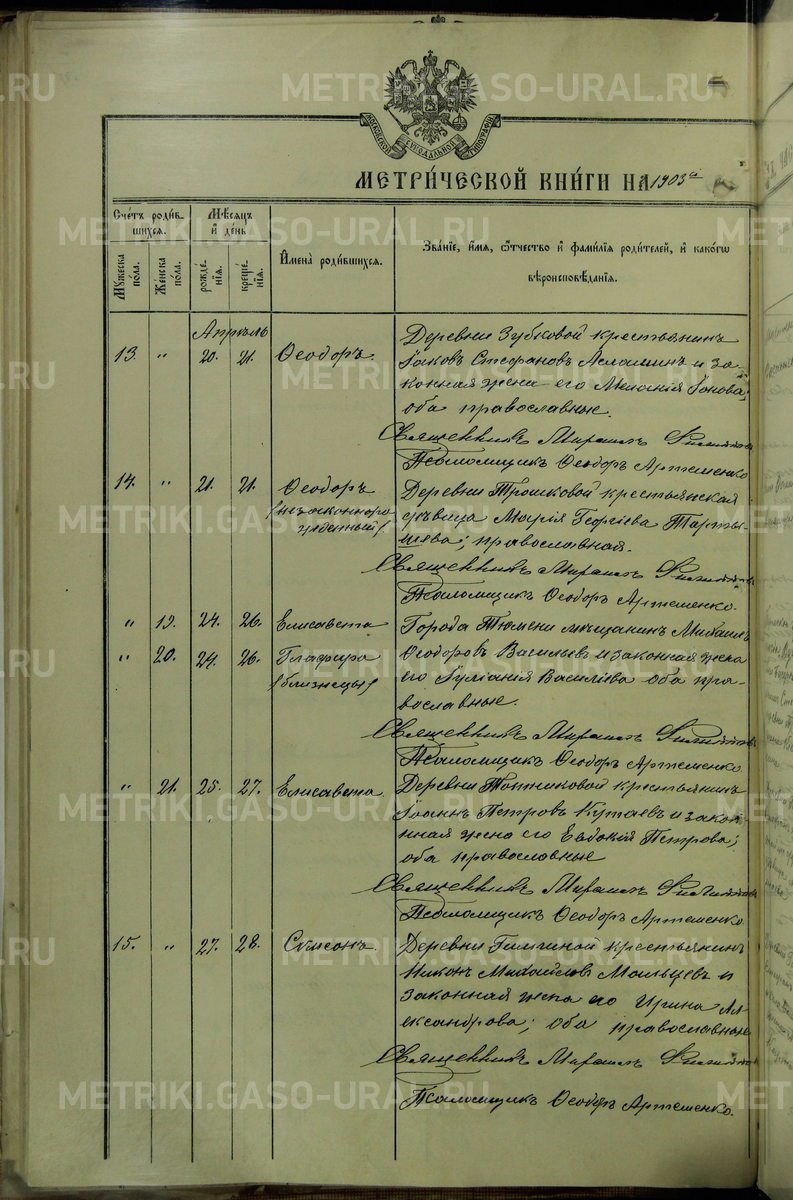 METRIKI.GASO-URAL.RU
МОСКОВСКОЙ СѴНОДАЛЬНОЙ ТИПОГРАФІИ
МЕТРИ́ЧЕСКОЙ КНИ́ГИ НА 1903 г.
Сче́тъ роди́в-
шихся.
Мѣ́сяцъ
и҆ де́нь
Мꙋ́жеска по́ла.
Же́нска по́ла.
рожде́-
нїѧ.
креще́-
нїѧ.
И҆мена̀ роди́вшихся.
Зва́нїе, и҆́мѧ, ѻ҆́тчество и҆ фами́лїѧ роди́телей, и҆ како́гѡ
вѣроисповѣ́данїѧ.
Апрѣль
13. " 20. 21. Ѳеодоръ
Деревни Зубковой крестьянинъ
Іаковъ Стефановъ и за-
конная жена его Меланія Іонова;
оба православные.
Священникъ
Псаломщикъ Ѳеодоръ Артеменко
14. " 21. 21. Ѳеодоръ
(незаконноро
жденный)
Деревни Трошковой крестьянская
дѣвица Марія Георгіева Тарты-
шева; православная.
Священникъ
Псаломщикъ Ѳеодоръ Артеменко.
" 19. 24. 26. Елисавета
" 20. 24. 26. Глафира
(близнецы)
Города Тюмени мѣщанинъ Михаилъ
Ѳеодоровъ Васильевъ и законная жена
его Іуліанія Василіева оба пра-
вославные.
Священникъ
Псаломщикъ Ѳеодоръ Артеменко
" 21. 25. 27. Елисавета
Деревни крестьянинъ
Іоаннъ Петровъ Кутаевъ и закон-
ная жена его Евдокія Петрова;
оба православные
Священникъ
Псаломщикъ Ѳеодоръ Артеменко
15. " 27. 28. Сѵмеонъ
Деревни крестьянинъ
Никонъ Михайловъ Мальцевъ и
законная жена его Ирина Ал-
ександрова; оба православные
Священникъ
Псаломщикъ Ѳеодоръ Артеменко.